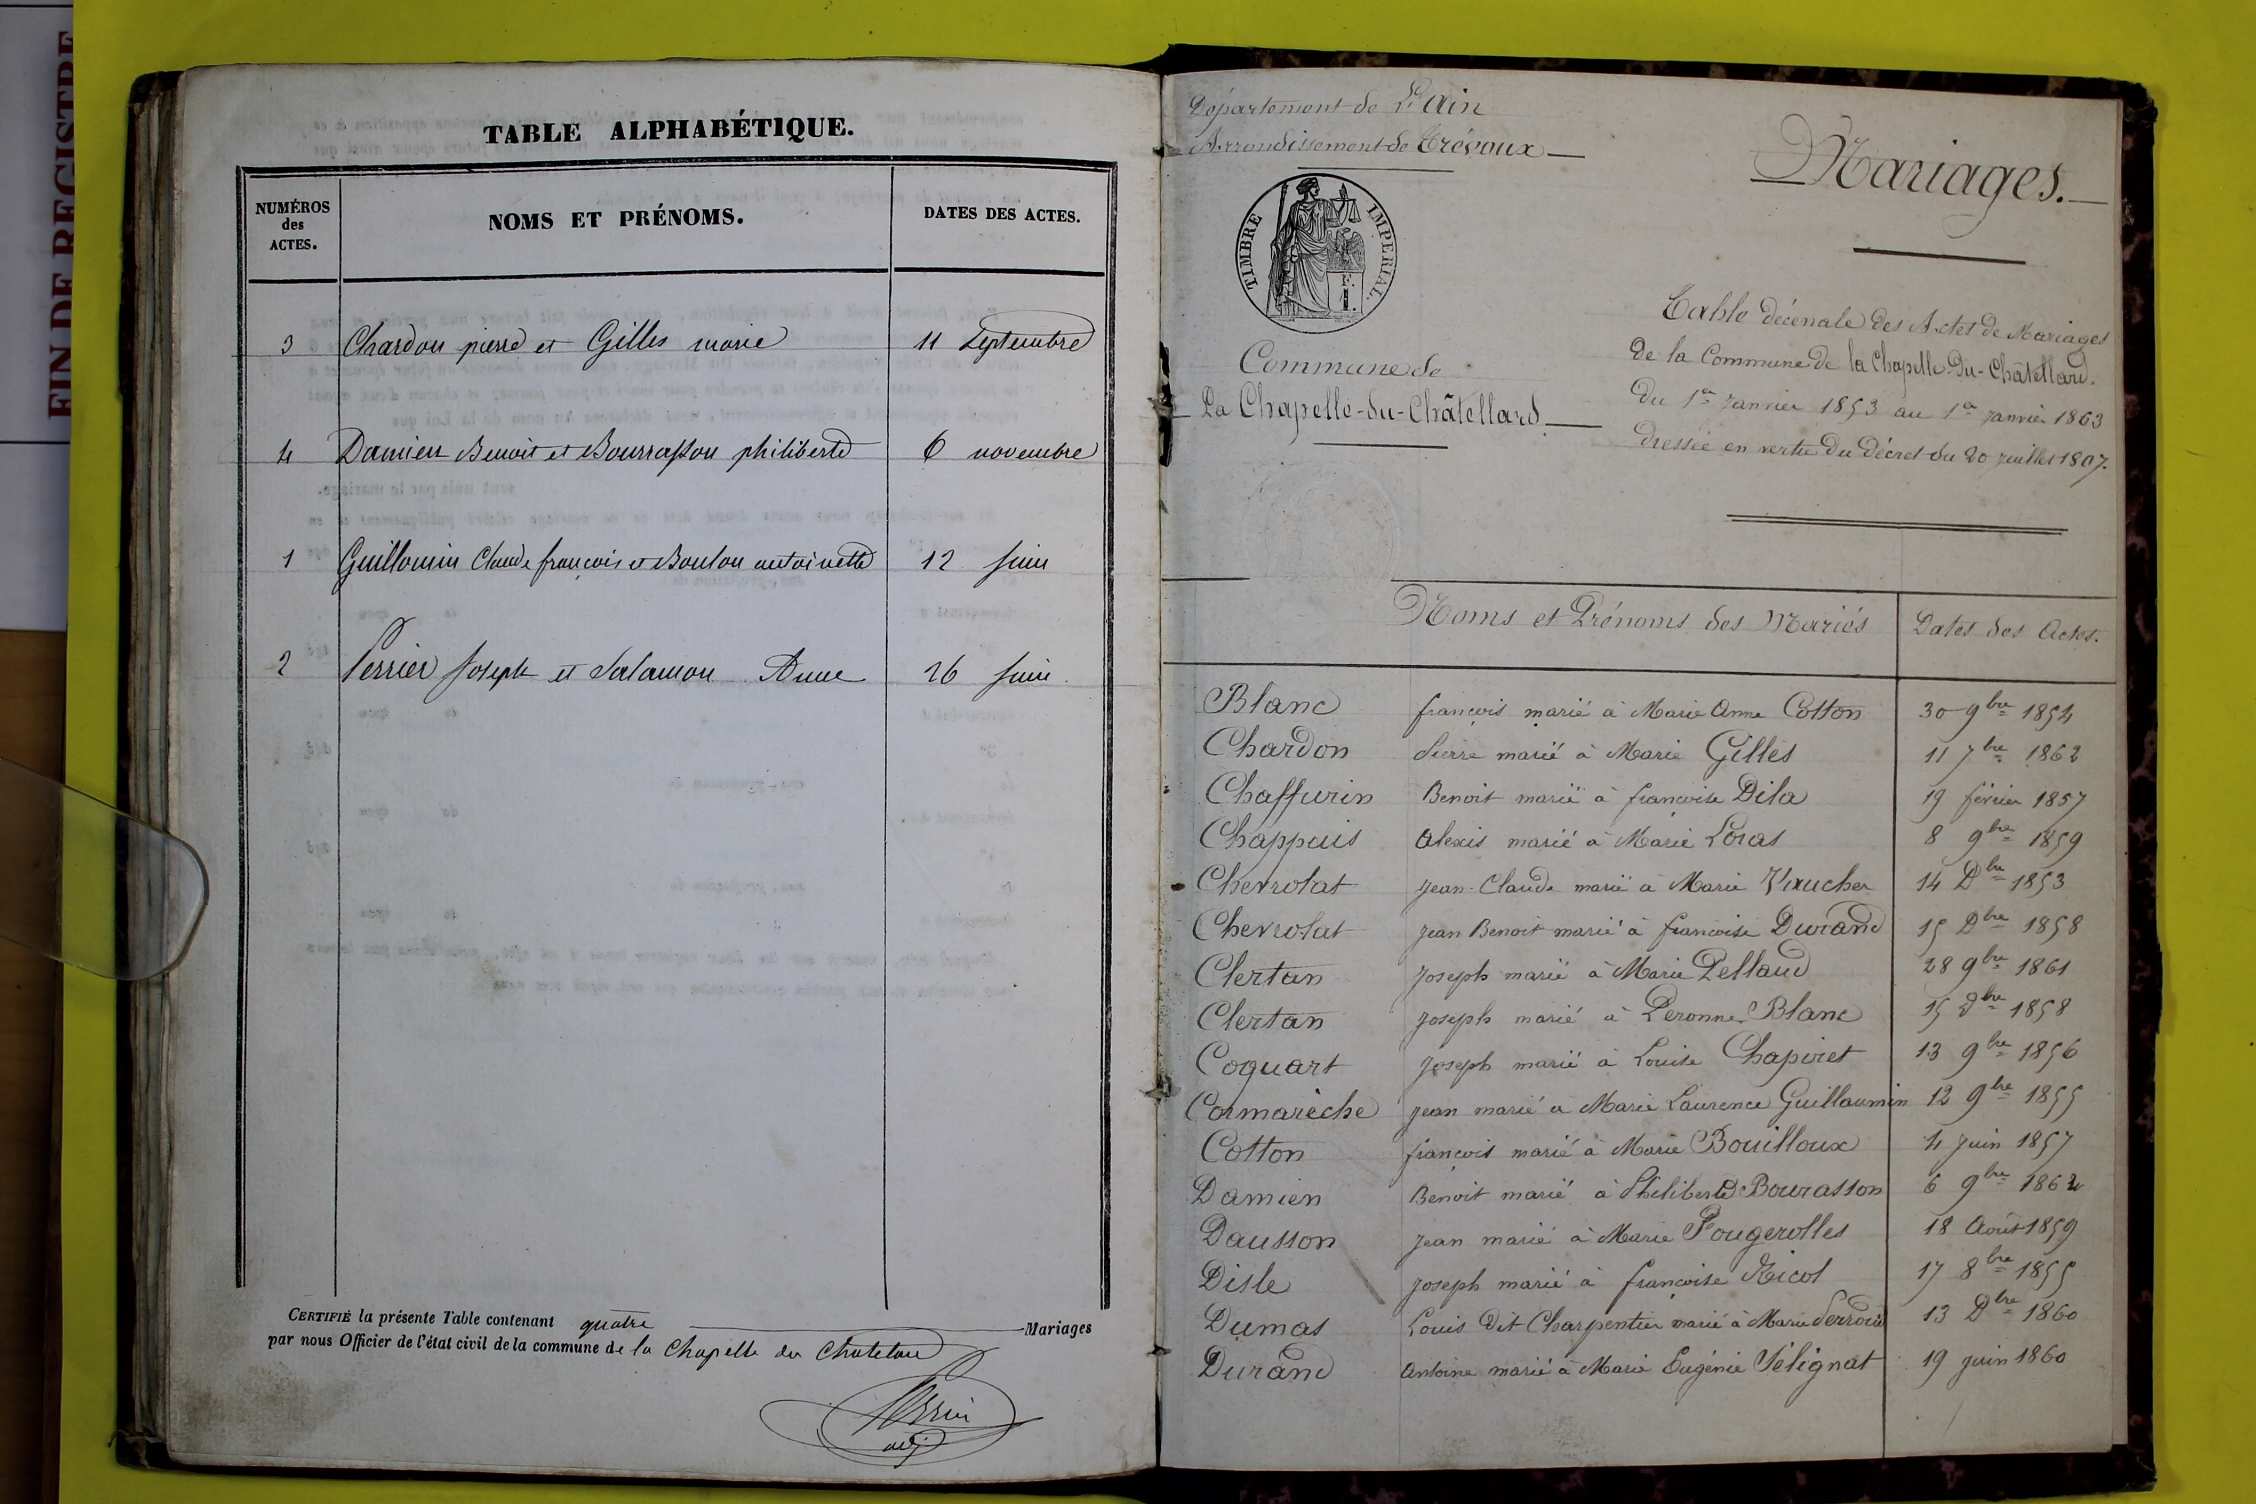 FIN DE REGISTRE
TABLE ALPHABÉTIQUE.
NUMÉROS des ACTES.
NOMS ET PRÉNOMS.
DATES DES ACTES.
3 Chardon pierre et Gilles marie 11 Septembre
4 Damien Benoit et Bourrasson philiberte 6 novembre
1 Guillomin Claude françois et Bouton antoinette 12 Juin
2 Perrier Joseph et Salamon Anne 26 Juin
CERTIFIÉ la présente Table contenant quatre Mariages
par nous Officier de l'état civil de la commune de la Chapelle du Chatelard
adj
Département de L'ain
Arrondissement de Trévoux
TIMBRE IMPERIAL.
F.
1.
Commune de
La Chapelle-du-Châtellard
Mariages.
Table décénale des Actes de Mariages
de la Commune de la Chapelle-du-Châtellard.
Du 1er Janvier 1853 au 1er Janvier 1863
dressée en vertu du décret du 20 juillet 1807.
Noms et Prénoms des Mariés Dates des Actes.
Blanc françois marié à Marie Anne Cotton 30 9bre 1854
Chardon Pierre marié à Marie Gilles 11 7bre 1862
Chaffurin Benoit marié à françoise Dila 19 février 1857
Chappuis Alexis marié à Marie Loras 8 9bre 1859
Chevrolat Jean-Claude marié à Marie Vaucher 14 Dbre 1853
Chevrolat Jean Benoit marié à françoise Durand 15 Dbre 1858
Clertan Joseph marié à Marie Pellaud 28 9bre 1861
Clertan Joseph marié à Peronne Blanc 15 Dbre 1858
Coquart Joseph marié à Louise Chapiret 13 9bre 1856
Cormarèche Jean marié à Marie Laurence Guillaumin 12 9bre 1855
Cotton françois marié à Marie Bouilloux 4 Juin 1857
Damien Benoit marié à Philiberte Bourasson 6 9bre 1862
Dausson Jean marié à Marie Fougerolles 18 Août 1859
Disle Joseph marié à françoise Nicol 17 8bre 1855
Dumas Louis dit Charpentier marié à Marie Perroud 13 Dbre 1860
Durand Antoine marié à Marie Eugénie Sélignat 19 juin 1860